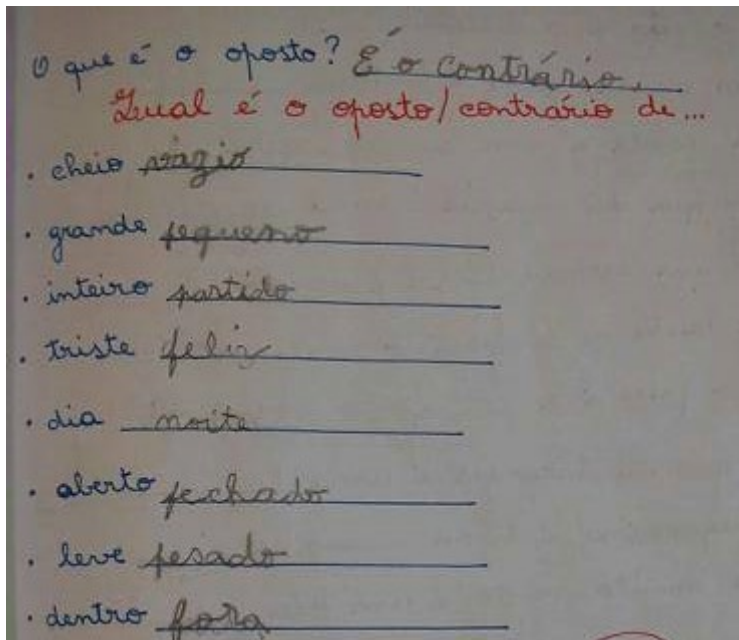 O que é o oposto? É o contrário.
Qual é o oposto/contrário de...
. cheio vazio
. grande pequeno
. inteiro partido
. triste feliz
. dia noite
. aberto fechado
. leve pesado
. dentro fora